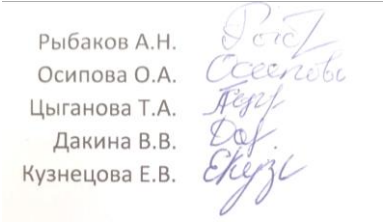 Рыбаков А.Н.
Осипова О.А. Осипова
Цыганова Т.А.
Дакина В.В.
Кузнецова Е.В.